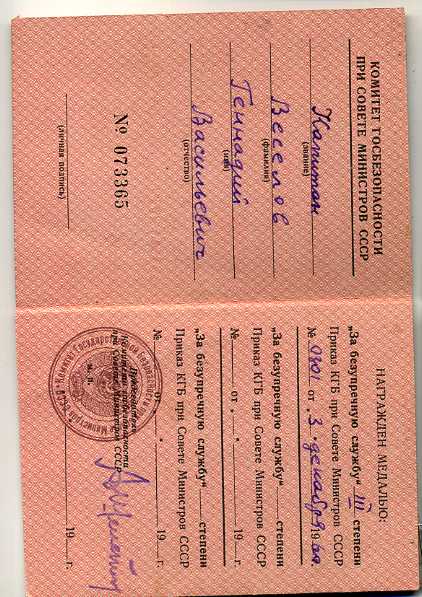 КОМИТЕТ ГОСБЕЗОПАСНОСТИ
ПРИ СОВЕТЕ МИНИСТРОВ СССР
Капитан
(звание)
Веселов
(фамилия)
Геннадий
(имя)
Васильевич
(отчество)
№ 073365
(личная подпись)
НАГРАЖДЕН МЕДАЛЬЮ:
„За безупречную службу“ III степени
Приказ КГБ при Совете Министров СССР
№ 0301 от „3“ декабря 1960 г.
„За безупречную службу“ степени
Приказ КГБ при Совете Министров СССР
№ от „ “ 19 г.
„За безупречную службу“ степени
Приказ КГБ при Совете Министров СССР
№ от „ “ 19 г.
Председатель
Комитета госбезопасности
при Совете Министров СССР
м. п.
19 г.